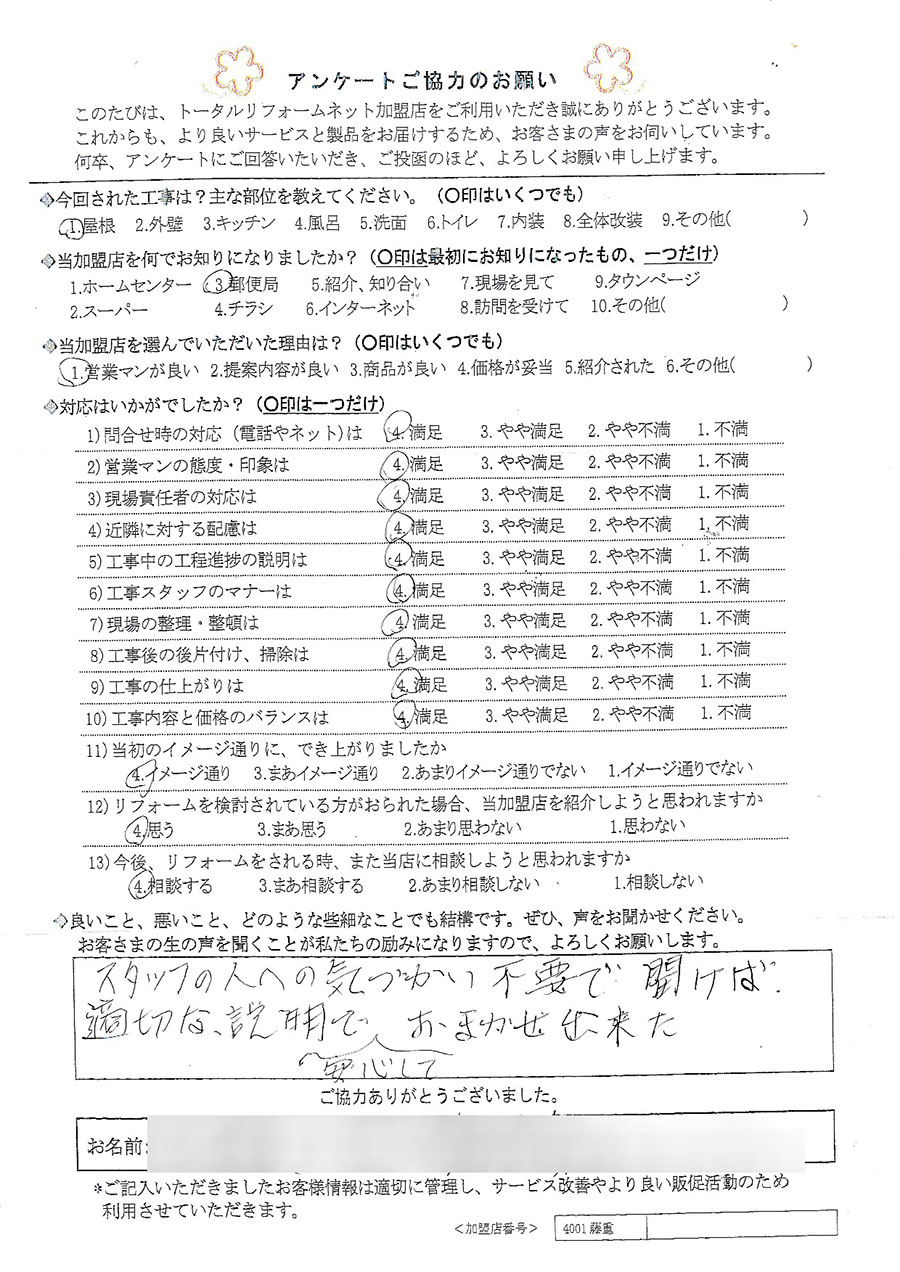 アンケートご協力のお願い
このたびは、トータルリフォームネット加盟店をご利用いただき誠にありがとうございます。
これからも、より良いサービスと製品をお届けするため、お客さまの声をお伺いしています。
何卒、アンケートにご回答いたいだき、ご投函のほど、よろしくお願い申し上げます。
◈今回された工事は？主な部位を教えてください。（〇印はいくつでも）
1.屋根 2.外壁 3.キッチン 4.風呂 5.洗面 6.トイレ 7.内装 8.全体改装 9.その他( )
◈当加盟店を何でお知りになりましたか？（〇印は最初にお知りになったもの、一つだけ）
1.ホームセンター 3.郵便局 5.紹介、知り合い 7.現場を見て 9.タウンページ
2.スーパー 4.チラシ 6.インターネット 8.訪問を受けて 10.その他( )
◈当加盟店を選んでいただいた理由は？（〇印はいくつでも）
1.営業マンが良い 2.提案内容が良い 3.商品が良い 4.価格が妥当 5.紹介された 6.その他( )
◈対応はいかがでしたか？（〇印は一つだけ）
1)問合せ時の対応（電話やネット）は 4.満足 3.やや満足 2.やや不満 1.不満
2)営業マンの態度・印象は 4.満足 3.やや満足 2.やや不満 1.不満
3)現場責任者の対応は 4.満足 3.やや満足 2.やや不満 1.不満
4)近隣に対する配慮は 4.満足 3.やや満足 2.やや不満 1.不満
5)工事中の工程進捗の説明は 4.満足 3.やや満足 2.やや不満 1.不満
6)工事スタッフのマナーは 4.満足 3.やや満足 2.やや不満 1.不満
7)現場の整理・整頓は 4.満足 3.やや満足 2.やや不満 1.不満
8)工事後の後片付け、掃除は 4.満足 3.やや満足 2.やや不満 1.不満
9)工事の仕上がりは 4.満足 3.やや満足 2.やや不満 1.不満
10)工事内容と価格のバランスは 4.満足 3.やや満足 2.やや不満 1.不満
11)当初のイメージ通りに、でき上がりましたか
4.イメージ通り 3.まあイメージ通り 2.あまりイメージ通りでない 1.イメージ通りでない
12)リフォームを検討されている方がおられた場合、当加盟店を紹介しようと思われますか
4.思う 3.まあ思う 2.あまり思わない 1.思わない
13)今後、リフォームをされる時、また当店に相談しようと思われますか
4.相談する 3.まあ相談する 2.あまり相談しない 1.相談しない
◈良いこと、悪いこと、どのような些細なことでも結構です。ぜひ、声をお聞かせください。
お客さまの生の声を聞くことが私たちの励みになりますので、よろしくお願いします。
スタッフの人への気づかい不要で聞けば
適切な、説明で、おまかせ出来た
安心して
ご協力ありがとうございました。
お名前:
*ご記入いただきましたお客様情報は適切に管理し、サービス改善やより良い販促活動のため
利用させていただきます。
＜加盟店番号＞ 4001藤重